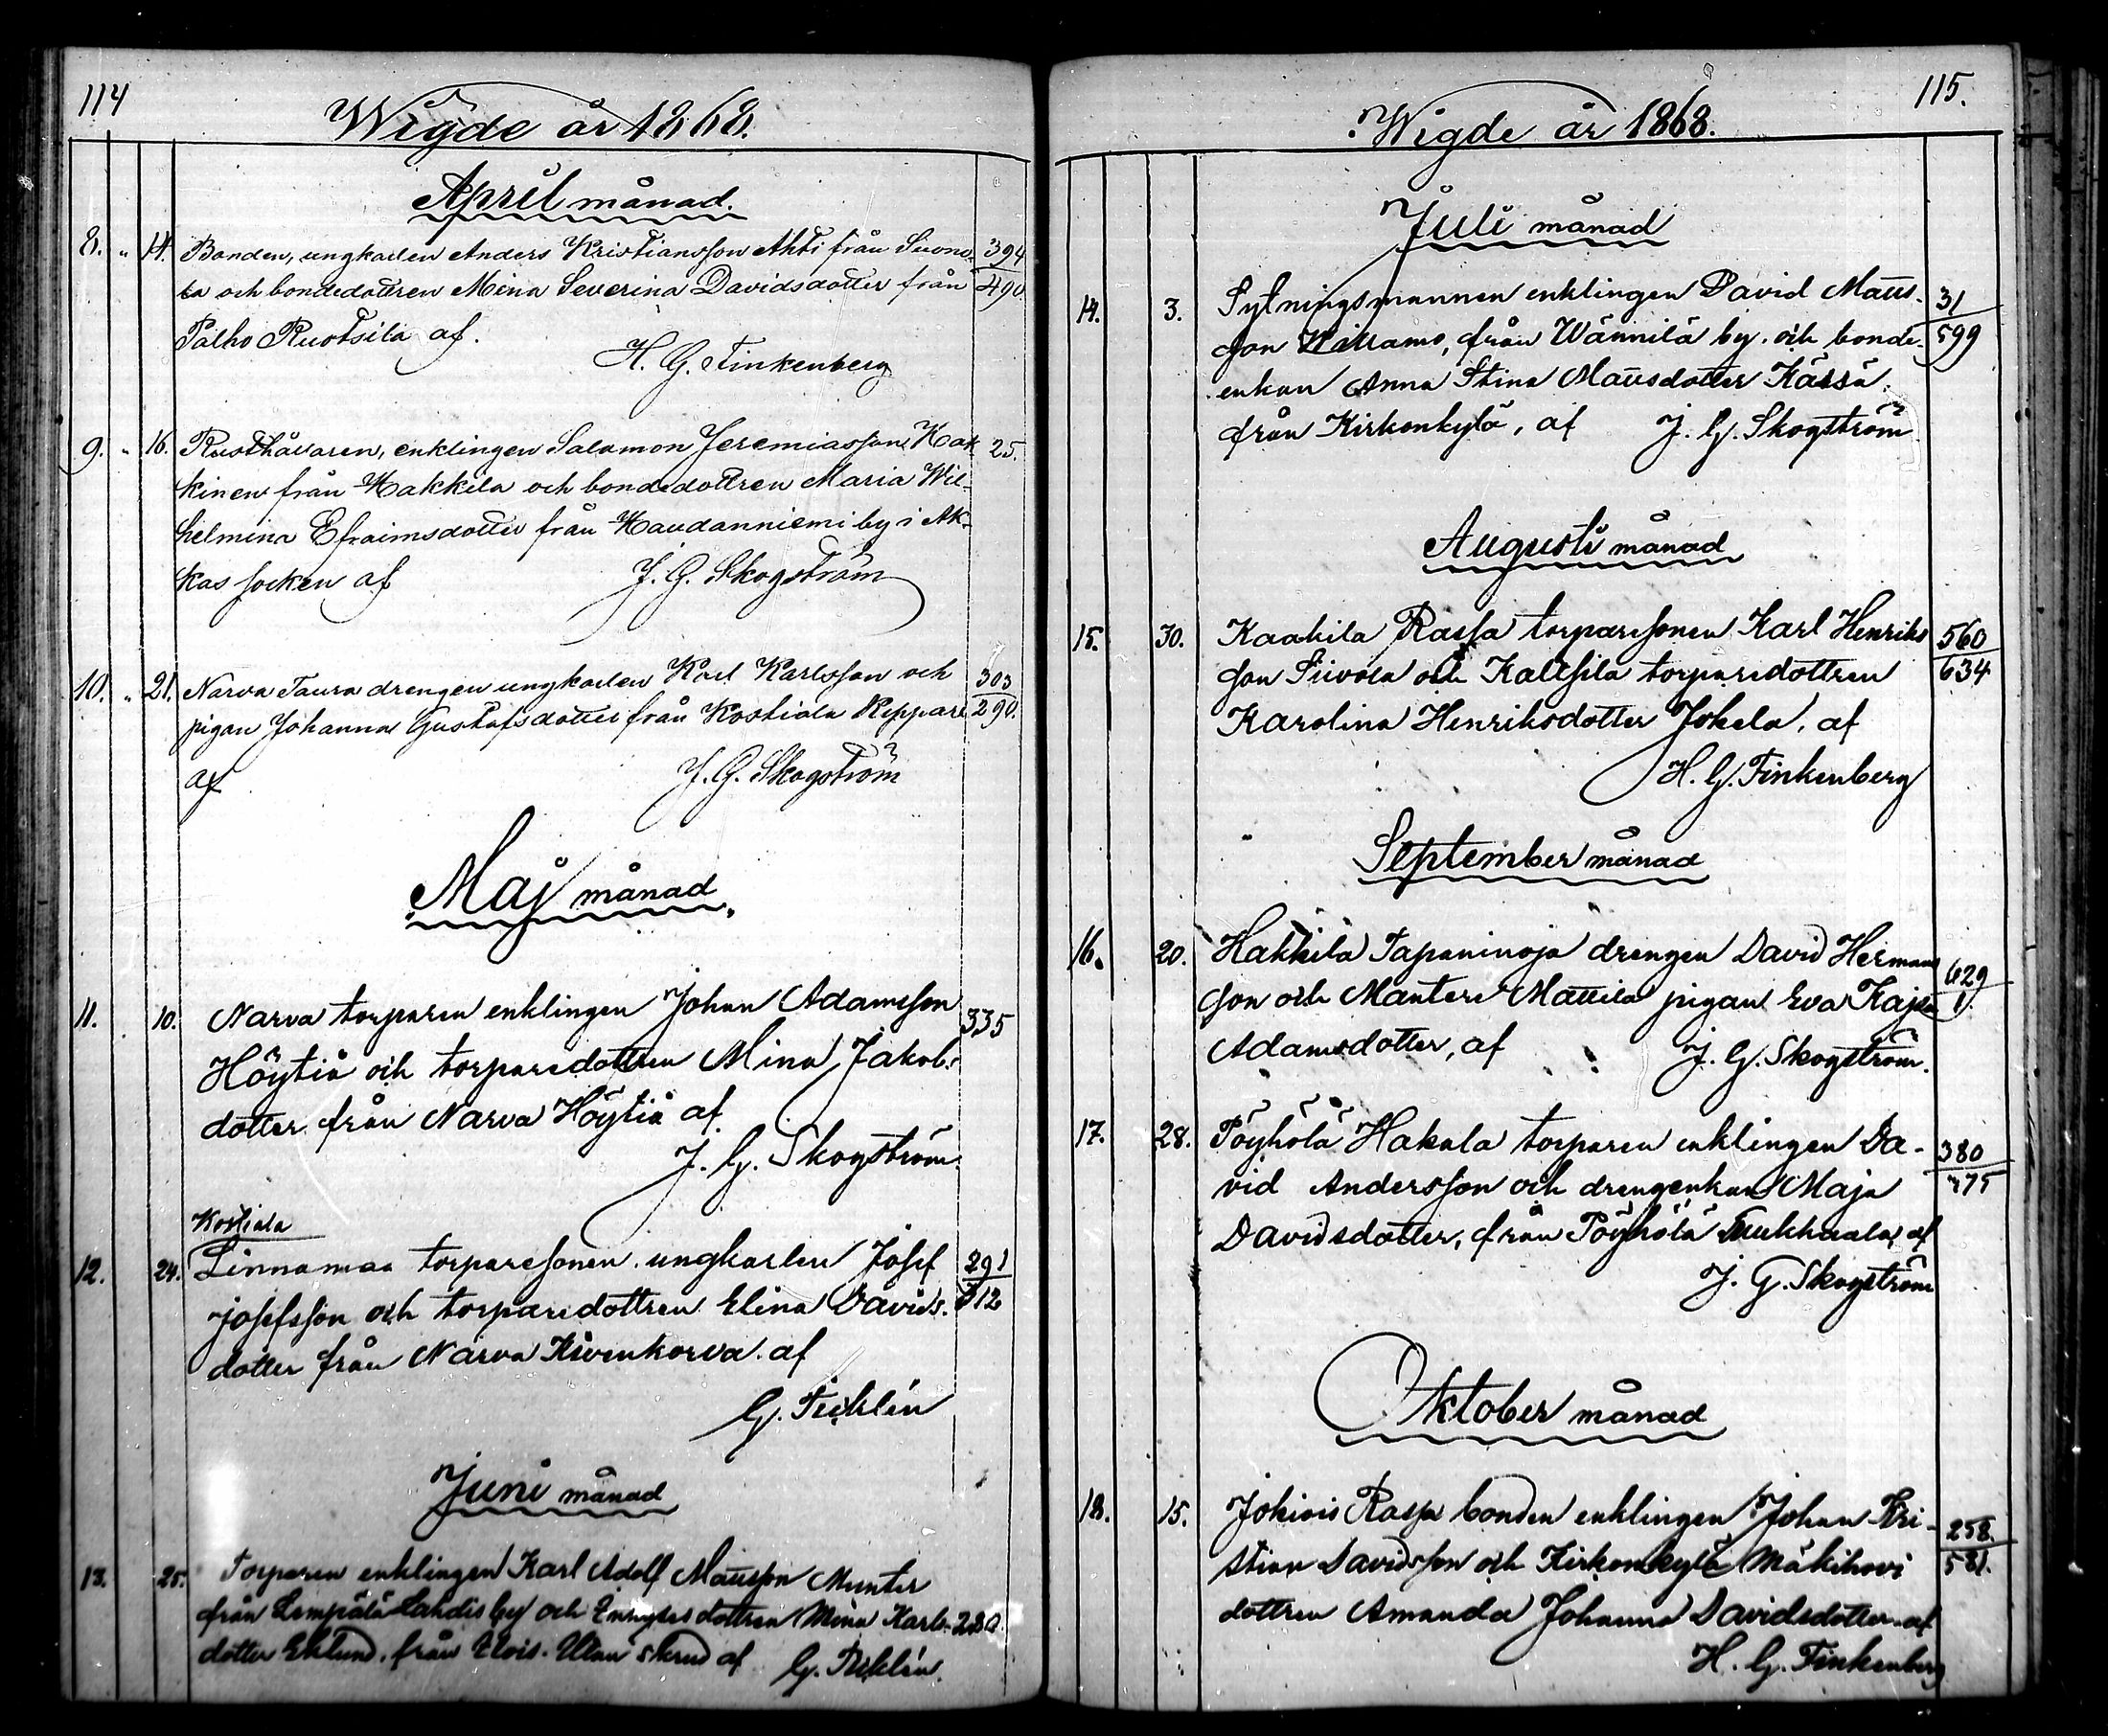 114
Wigde år 1868.
April månad.
8. " 14. Bonden, ungkarlen Anders Kristiansson Ahti från Suono- 394
la och bondedottren Mina Severina Davidsdotter från 490.
Palho Ruotsila af.
H. G. Finkenberg
9. " 16. Rusthållaren, enklingen Salomon Jeremiasson Hak- 25.
kinen från Hakkila och bondedottren Maria Wil-
helmina Efraimsdotter från Haudanniemi by i Ak-
kas socken af
J. G. Skogström
10. " 21. Narva Taura drengen ungkarlen Karl Karlsson och 303
pigan Johanna Gustafsdotter från Kostiala Reppari 290.
af
J. G. Skogström
Maj månad
11. 10. Narva torparen enklingen Johan Adamsson 335
Höytiä och torparedottren Mina Jakobs
dotter från Narva Höytiä af.
J. G. Skogström.
Kostiala
12. 24. Linnamaa torparesonen ungkarlen Josef 291
Josefsson och torparedottren Elina Davids- 312
dotter från Narva Kivenkorva af
G. Ticklén
Juni månad
13. 25. Torparen enklingen Karl Adolf Mattsson Munter
från Lempälä Lahdis by och Inhyses dottren Mina Karls- 280.
dotter Eklund, från Utan skrud af G. Ticklén.
115.
Wigde år 1868.
Juli månad
14. 3. Sytningsmannen enklingen David Matts- 31
son från Wännilä by och bonde- 599
enkan Anna Stina Mattsdotter Kässä
från Kirkonkylä, af J. G. Skogström
Augusti månad
15. 30. Kaakila Rassa torparesonen Karl Henriks 560
son Siivola och Kaltsila torparedottren 634
Karolina Henriksdotter Jokela, af
H. G. Finkenberg
September månad
16. 20. Hakkila Tapaninoja drengen David Hermans 629
son och Mantere Mattila pigan Eva Kajsa 1.
Adamsdotter, af J. G. Skogström.
17. 28. Pöyhölä Hakala torparen enklingen Da- 380
vid Andersson och drengenkan Maja 375
Davidsdotter, från Pöyhölä af
J. G. Skogström
Oktober månad
18. 15. Jokiois Raspa bonden enklingen Johan Kri- 258.
stian Davidsson och Kirkonkylä Mäkihovi 581.
dottren Amanda Johanna Davidsdotter af
H. G. Finkenberg